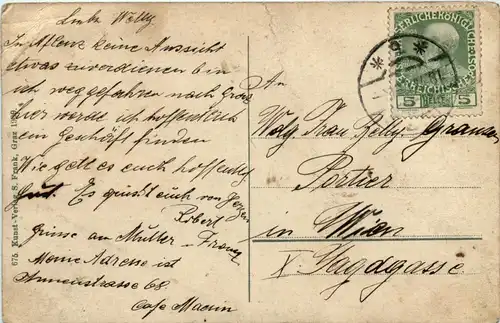 Liebe Welly
In Aflenz keine Aussicht
etwas zu verdienen bin
ich weggefahren nach Graz
hier werde ich hoffentlich
ein Geschäft finden
Wie gett es euch hoffentlich
gut. Es grüsst euch von
Robert
Grüsse an Mutter – Franz
Meine Adresse ist
Annenstrasse 68
Cafe
675. Kunst-Verlag S. Frank, Graz
An
Frau
Portier
in Wien
X Jagdgasse
5 5